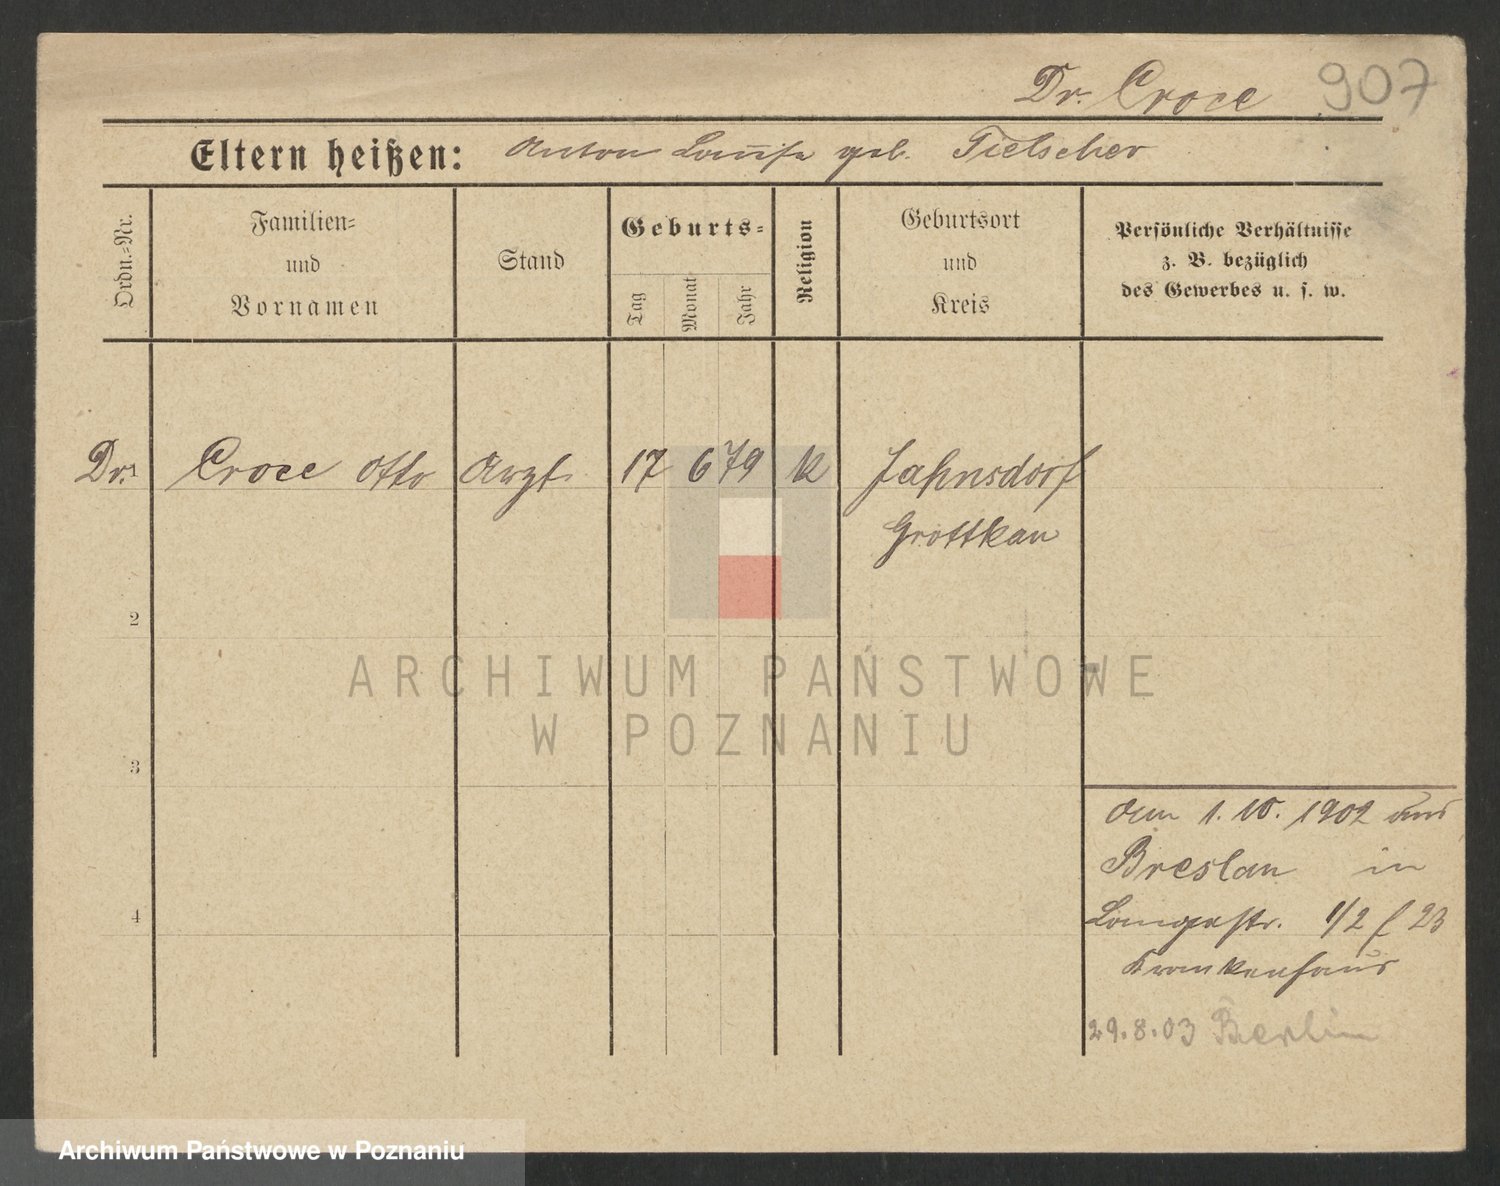 Dr. Croce 907
Eltern heißen: Anton Louise geb. Tielscher
Ordn.-Nr.
Familien- und Vornamen
Stand
Geburts-
Tag
Monat
Jahr
Religion
Geburtsort und Kreis
Persönliche Verhältnisse
z. B. bezüglich
des Gewerbes u. s. w.
Dr. Croce Otto Arzt 17 6 79 K Jahnsdorf
Grottkau
2
ARCHIWUM PAŃSTWOWE
W POZNANIU
3
Am 1. 10. 1902 aus
Breslau in
4
Langestr. 1/2 f 23
Krankenhaus
29.8.03 Berlin
Archiwum Państwowe w Poznaniu